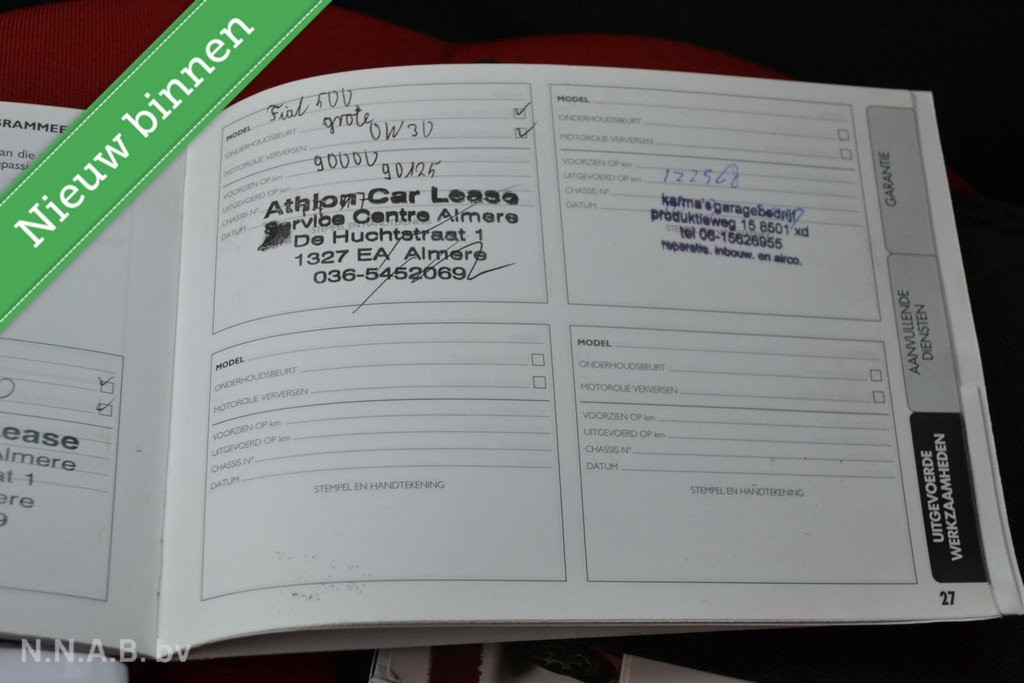 Nieuw binnen
GRAMMEE
an die
epassi
MODEL Fiat 500
ONDERHOUDSBEURT grote
MOTOROLIE VERVERSEN 0W30
VOORZIEN OP km 90000
UITGEVOERD OP km 90125
CHASSIS N°
DATUM
STEMPEL EN HANDTEKENING
Athlon Car Lease
Service Centre Almere
De Huchtstraat 1
1327 EA Almere
036-5452069
MODEL
ONDERHOUDSBEURT
MOTOROLIE VERVERSEN
VOORZIEN OP km
UITGEVOERD OP km
CHASSIS N°
DATUM
karma's garagebedrijf
produktieweg 15 8501 xd
tel 06-15626955
reparatie. inbouw. en airco.
ease
Almere
at 1
ere
9
MODEL
ONDERHOUDSBEURT
MOTOROLIE VERVERSEN
VOORZIEN OP km
UITGEVOERD OP km
CHASSIS N°
DATUM
STEMPEL EN HANDTEKENING
MODEL
ONDERHOUDSBEURT
MOTOROLIE VERVERSEN
VOORZIEN OP km
UITGEVOERD OP km
CHASSIS N°
DATUM
STEMPEL EN HANDTEKENING
GARANTIE
AANVULLENDE
DIENSTEN
UITGEVOERDE
WERKZAAMHEDEN
27
N.N.A.B. bv